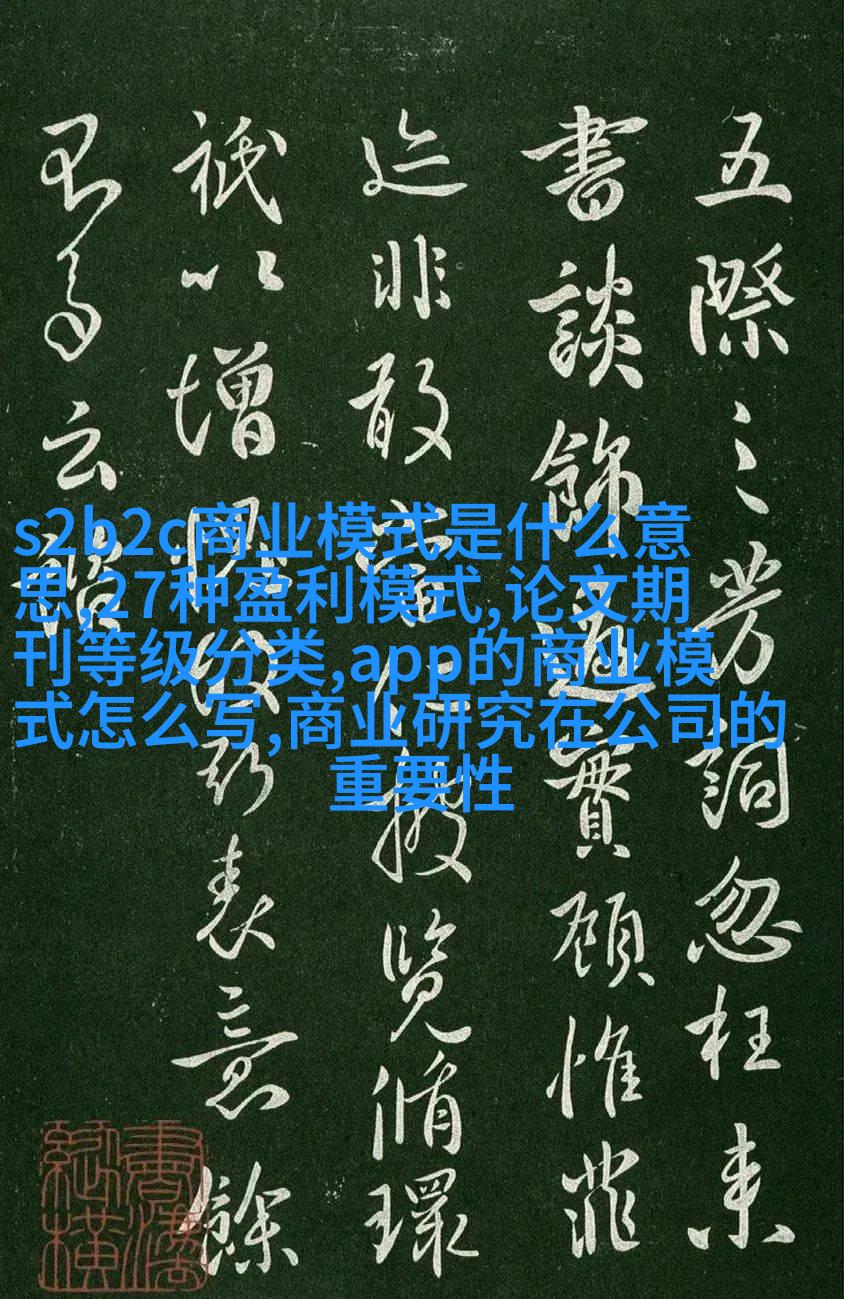 五際之芳詞忽枉来
書談飾過實顧惟菲
迹非敢當仁披覽循環
祇以增愧故
表意餘
云
s2b2c商业模式是什么意
思,27种盈利模式,论文期
刊等级分类,app的商业模
式怎么写,商业研究在公司的
重要性